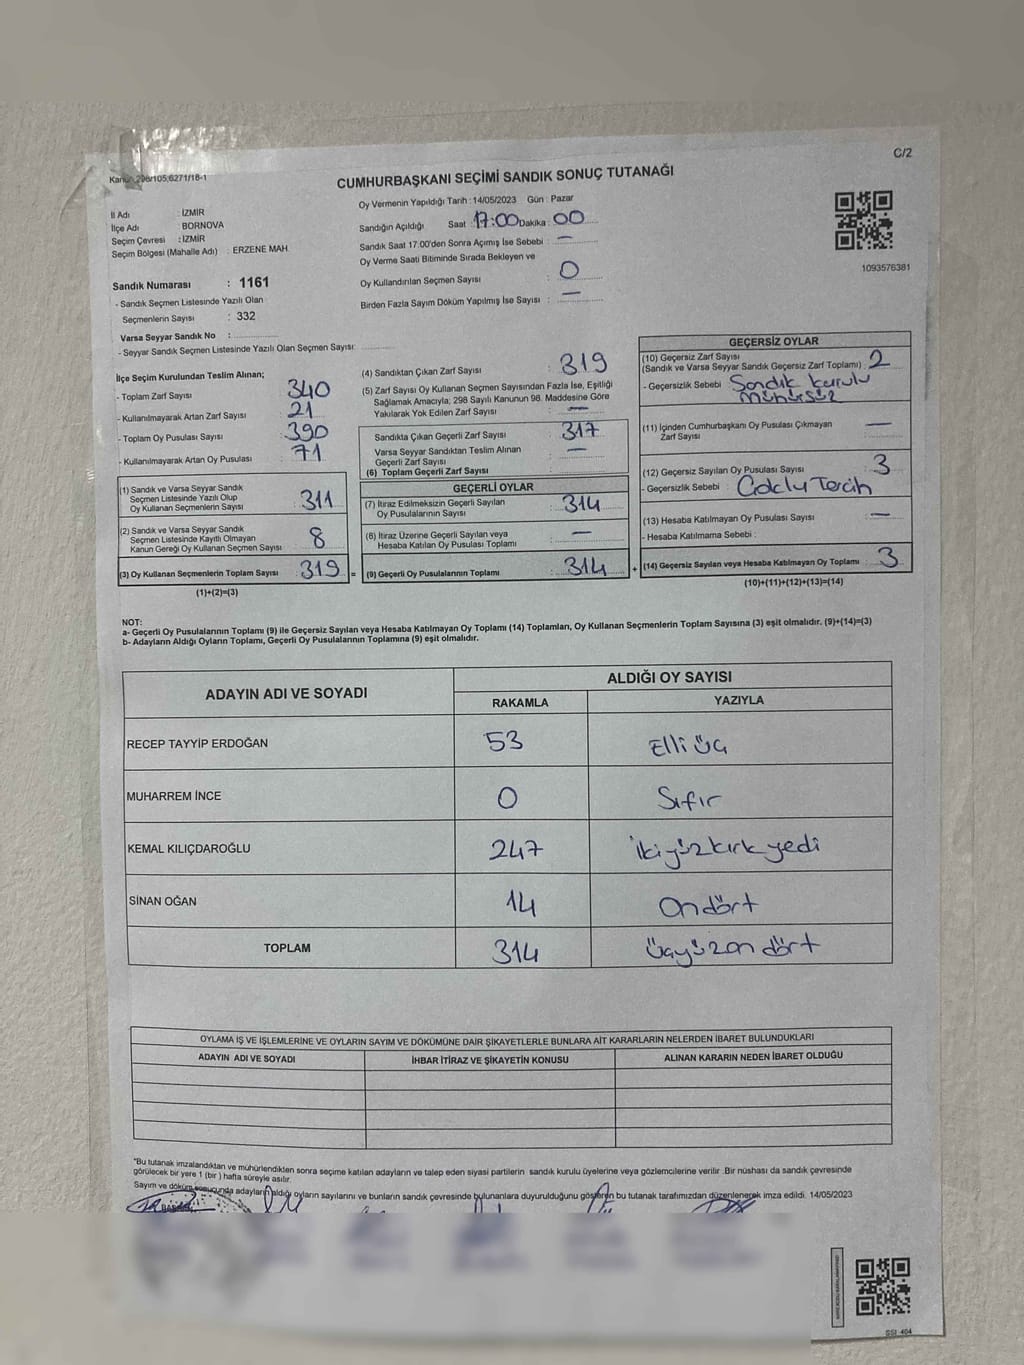 C/2
Kanun 298/105;6271/18-1
CUMHURBAŞKANI SEÇİMİ SANDIK SONUÇ TUTANAĞI
İl Adı : İZMİR
İlçe Adı : BORNOVA
Seçim Çevresi : İZMİR
Seçim Bölgesi (Mahalle Adı) : ERZENE MAH.
Sandık Numarası : 1161
- Sandık Seçmen Listesinde Yazılı Olan
Seçmenlerin Sayısı : 332
Varsa Seyyar Sandık No :
- Seyyar Sandık Seçmen Listesinde Yazılı Olan Seçmen Sayısı:
Oy Vermenin Yapıldığı Tarih : 14/05/2023 Gün : Pazar
Sandığın Açıldığı Saat 17:00 Dakika : 00
Sandık Saat 17:00'den Sonra Açımış İse Sebebi : —
Oy Verme Saati Bitiminde Sırada Bekleyen ve
Oy Kullandırılan Seçmen Sayısı : 0
Birden Fazla Sayım Döküm Yapılmış İse Sayısı : —
1093576381
İlçe Seçim Kurulundan Teslim Alınan;
- Toplam Zarf Sayısı 340
- Kullanılmayarak Artan Zarf Sayısı 21
- Toplam Oy Pusulası Sayısı 390
- Kullanılmayarak Artan Oy Pusulası 71
(1) Sandık ve Varsa Seyyar Sandık
Seçmen Listesinde Yazılı Olup
Oy Kullanan Seçmenlerin Sayısı : 311
(2) Sandık ve Varsa Seyyar Sandık
Seçmen Listesinde Kayıtlı Olmayan
Kanun Gereği Oy Kullanan Seçmen Sayısı : 8
(3) Oy Kullanan Seçmenlerin Toplam Sayısı : 319 =
(1)+(2)=(3)
(4) Sandıktan Çıkan Zarf Sayısı : 319
(5) Zarf Sayısı Oy Kullanan Seçmen Sayısından Fazla İse, Eşitliği
Sağlamak Amacıyla; 298 Sayılı Kanunun 98. Maddesine Göre
Yakılarak Yok Edilen Zarf Sayısı : —
Sandıkta Çıkan Geçerli Zarf Sayısı : 317
Varsa Seyyar Sandıktan Teslim Alınan
Geçerli Zarf Sayısı : —
(6) Toplam Geçerli Zarf Sayısı :
GEÇERLİ OYLAR
(7) İtiraz Edilmeksizin Geçerli Sayılan
Oy Pusulalarının Sayısı : 314
(8) İtiraz Üzerine Geçerli Sayılan veya
Hesaba Katılan Oy Pusulası Toplamı : —
(9) Geçerli Oy Pusulalarının Toplamı : 314 +
GEÇERSİZ OYLAR
(10) Geçersiz Zarf Sayısı
(Sandık ve Varsa Seyyar Sandık Geçersiz Zarf Toplamı) : 2
- Geçersizlik Sebebi : Sandık kurulu
Mühürsüz
(11) İçinden Cumhurbaşkanı Oy Pusulası Çıkmayan
Zarf Sayısı : —
(12) Geçersiz Sayılan Oy Pusulası Sayısı : 3
- Geçersizlik Sebebi : Çoklu Tercih
(13) Hesaba Katılmayan Oy Pusulası Sayısı : —
- Hesaba Katılmama Sebebi :
(14) Geçersiz Sayılan veya Hesaba Katılmayan Oy Toplamı : 3
(10)+(11)+(12)+(13)=(14)
NOT:
a- Geçerli Oy Pusulalarının Toplamı (9) ile Geçersiz Sayılan veya Hesaba Katılmayan Oy Toplamı (14) Toplamları, Oy Kullanan Seçmenlerin Toplam Sayısına (3) eşit olmalıdır. (9)+(14)=(3)
b- Adayların Aldığı Oyların Toplamı, Geçerli Oy Pusulalarının Toplamına (9) eşit olmalıdır.
ADAYIN ADI VE SOYADI ALDIĞI OY SAYISI
RAKAMLA YAZIYLA
RECEP TAYYİP ERDOĞAN 53 Elli üç
MUHARREM İNCE 0 Sıfır
KEMAL KILIÇDAROĞLU 247 ikiyüzkırk yedi
SİNAN OĞAN 14 Ondört
TOPLAM 314 üçyüzon dört
OYLAMA İŞ VE İŞLEMLERİNE VE OYLARIN SAYIM VE DÖKÜMÜNE DAİR ŞİKAYETLERLE BUNLARA AİT KARARLARIN NELERDEN İBARET BULUNDUKLARI
ADAYIN ADI VE SOYADI İHBAR İTİRAZ VE ŞİKAYETİN KONUSU ALINAN KARARIN NEDEN İBARET OLDUĞU
*Bu tutanak imzalandıktan ve mühürlendikten sonra seçime katılan adayların ve talep eden siyasi partilerin sandık kurulu üyelerine veya gözlemcilerine verilir. Bir nüshası da sandık çevresinde
görülecek bir yere 1 (bir) hafta süreyle asılır.
Sayım ve döküm sonucunda adayların aldığı oyların sayılarını ve bunların sandık çevresinde bulunanlara duyurulduğunu gösteren bu tutanak tarafımızdan düzenlenerek imza edildi. 14/05/2023
SSI: 404